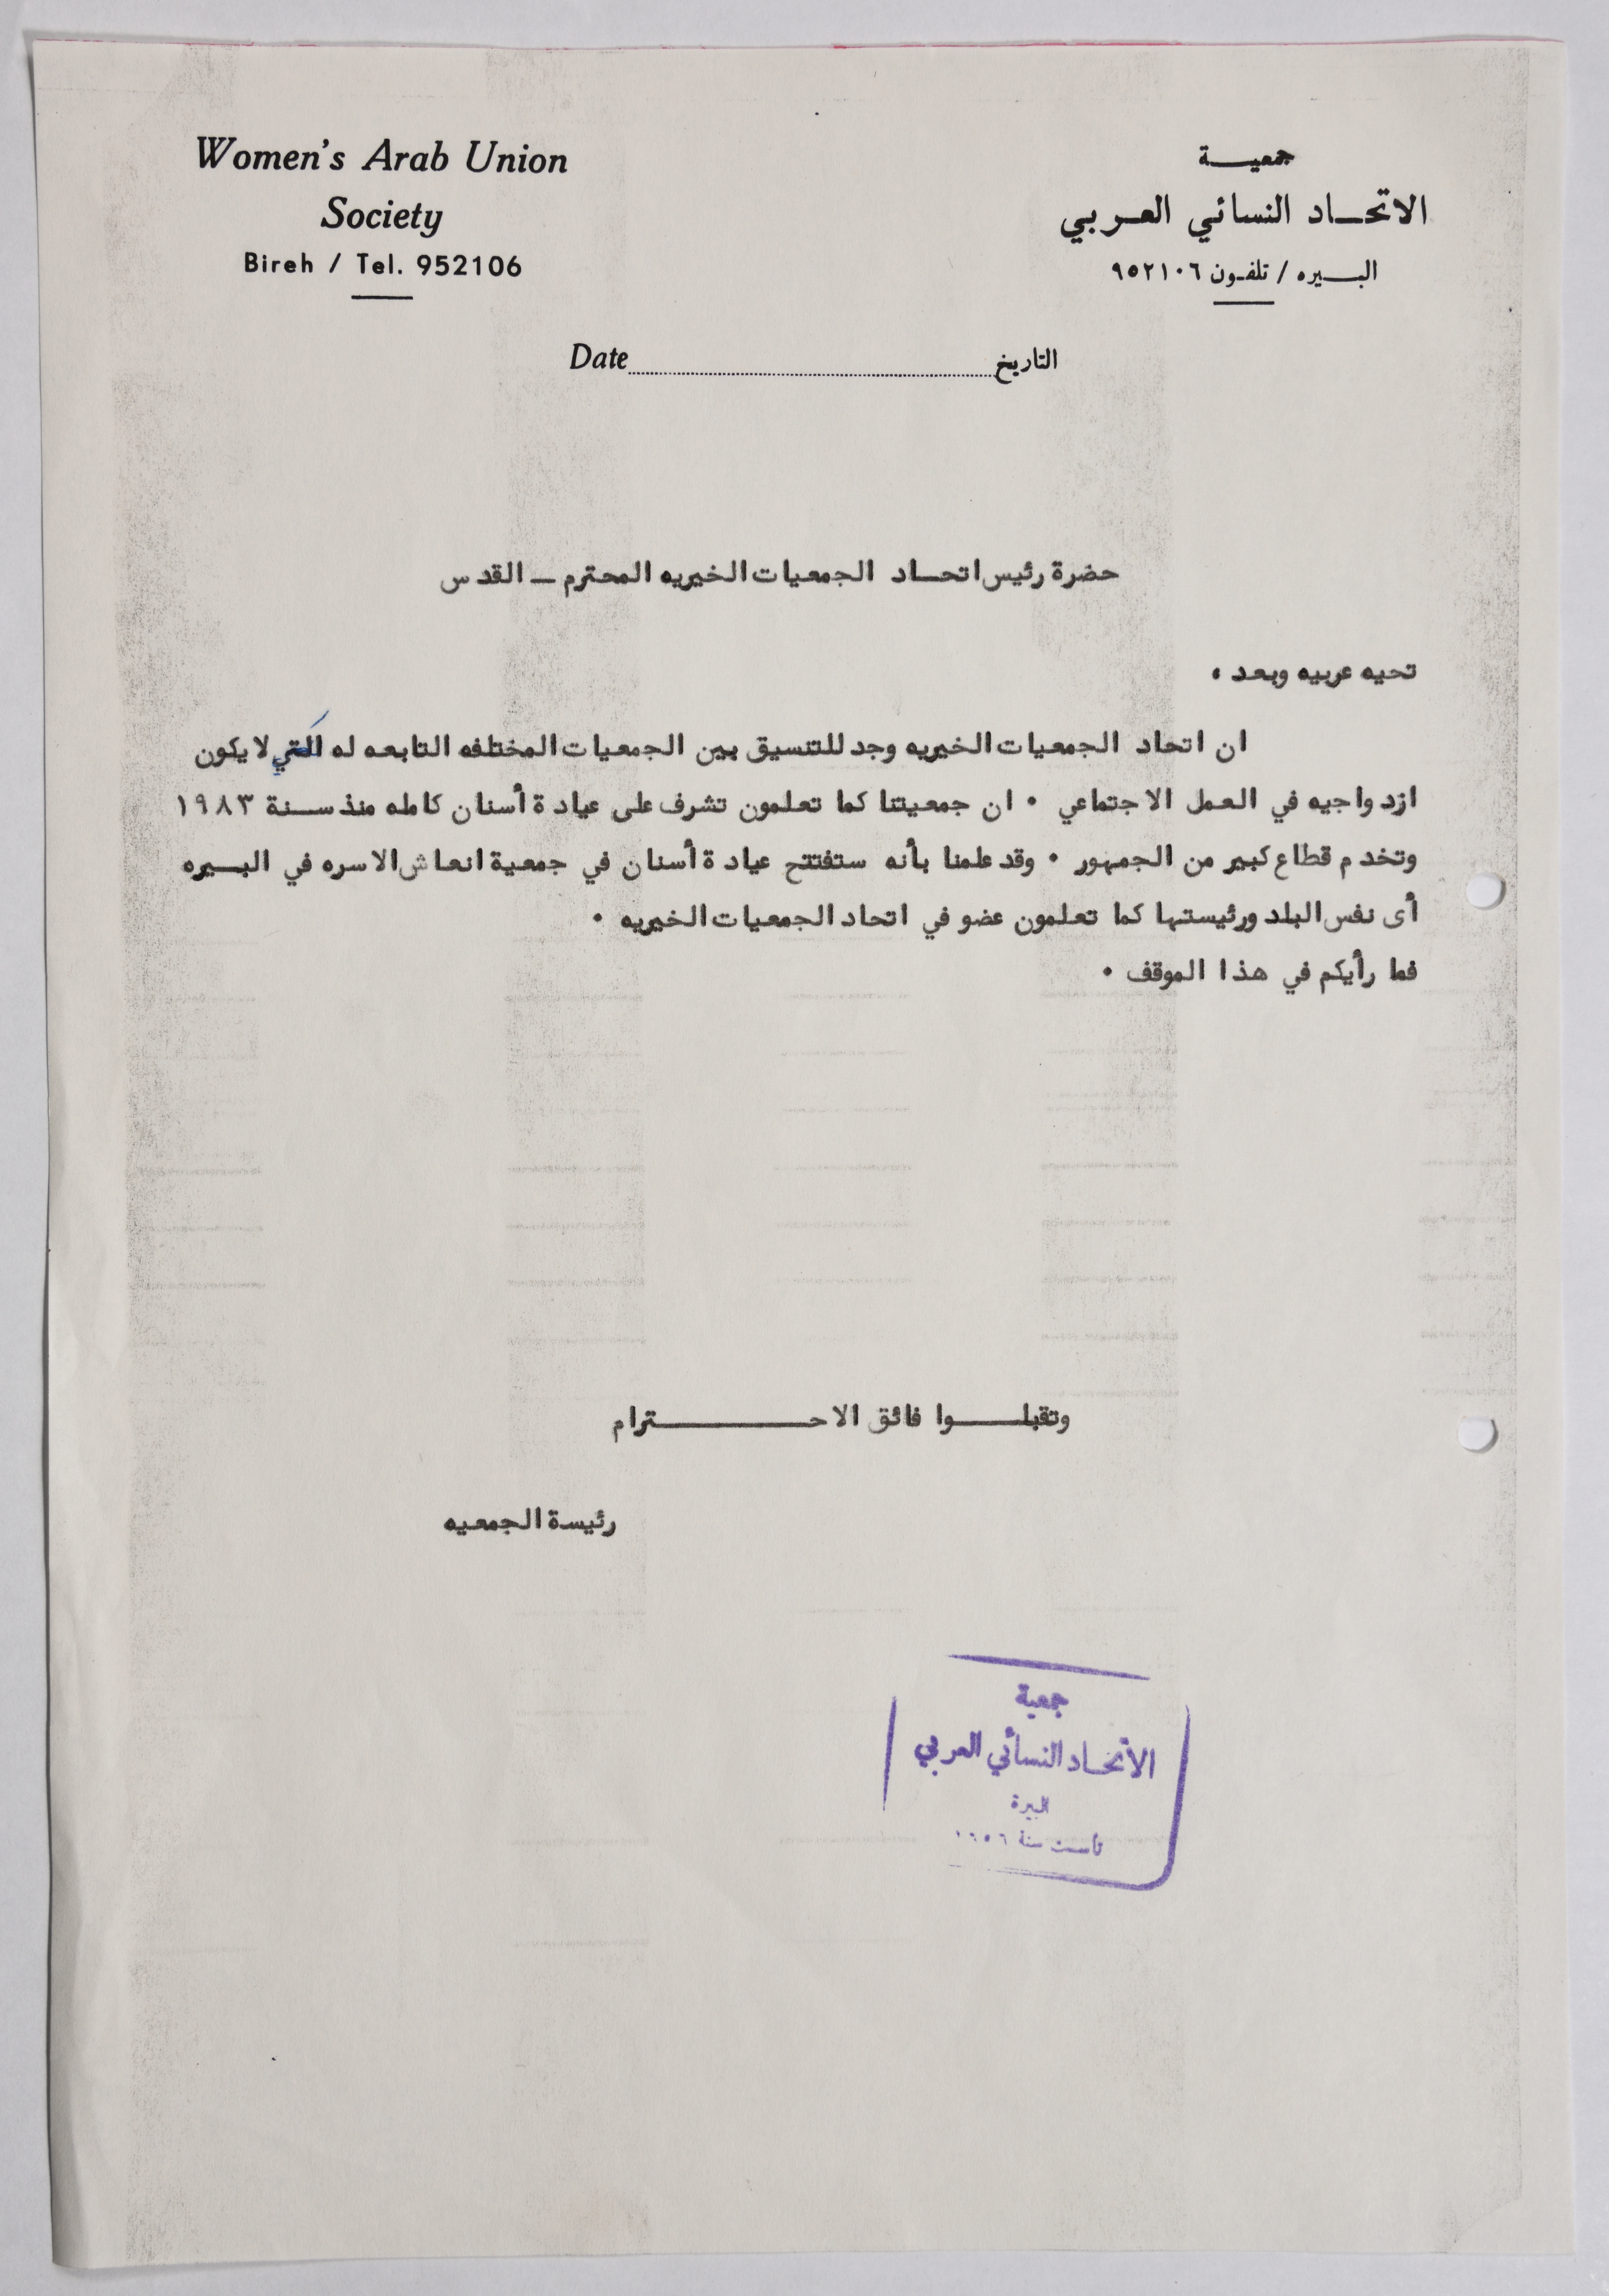 Women's Arab Union
Society
Bireh / Tel. 952106
جمعيـــة
الاتحـــاد النسائي العـربي
البـــيره / تلفـون ٩٥٢١٠٦
Date التاريخ
حضرة رئيس اتحـاد الجمعيات الخيريه المحترم ــ القدس
تحيه عربيه وبعد ،
ان اتحاد الجمعيات الخيريه وجد للتنسيق بين الجمعيات المختلفه التابعه له لكي لا يكون
ازدواجيه في العمل الاجتماعي . ان جمعيتنا كما تعلمون تشرف على عيادة أسنان كامله منذ سـنة ١٩٨٣
وتخدم قطاع كبير من الجمهور . وقد علمنا بأنه ستفتتح عيادة أسنان في جمعية انعاش الاسره في البـيره
أى نفس البلد ورئيستها كما تعلمون عضو في اتحاد الجمعيات الخيريه .
فما رأيكم في هذا الموقف .
وتقبلـــوا فائق الاحـــــــترام
رئيسة الجمعيه
جمعية
الاتحـاد النسائي العربي
البيرة
تأسست سنة